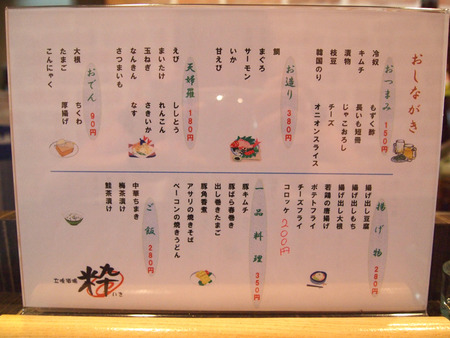 おしながき
おつまみ 150円
冷奴
キムチ
漬物
枝豆
韓国のり
もずく酢
長いも短冊
じゃこおろし
チーズ
オニオンスライス
お造り 380円
鯛
まぐろ
サーモン
いか
甘えび
天婦羅 180円
えび
まいたけ
玉ねぎ
なんきん
さつまいも
ししとう
れんこん
さきいか
なす
おでん 90円
大根
たまご
こんにゃく
ちくわ
厚揚げ
揚げ物 280円
揚げ出し豆腐
揚げ出しもち
揚げ出し大根
若鶏の唐揚げ
ポテトフライ
チーズフライ
コロッケ 200円
一品料理 350円
豚キムチ
豚ばら春巻き
出し巻きたまご
豚角香煮
アサリの焼きそば
ベーコンの焼きうどん
ご飯 280円
中華ちまき
梅茶漬け
鮭茶漬け
立喰酒場
粋
いき